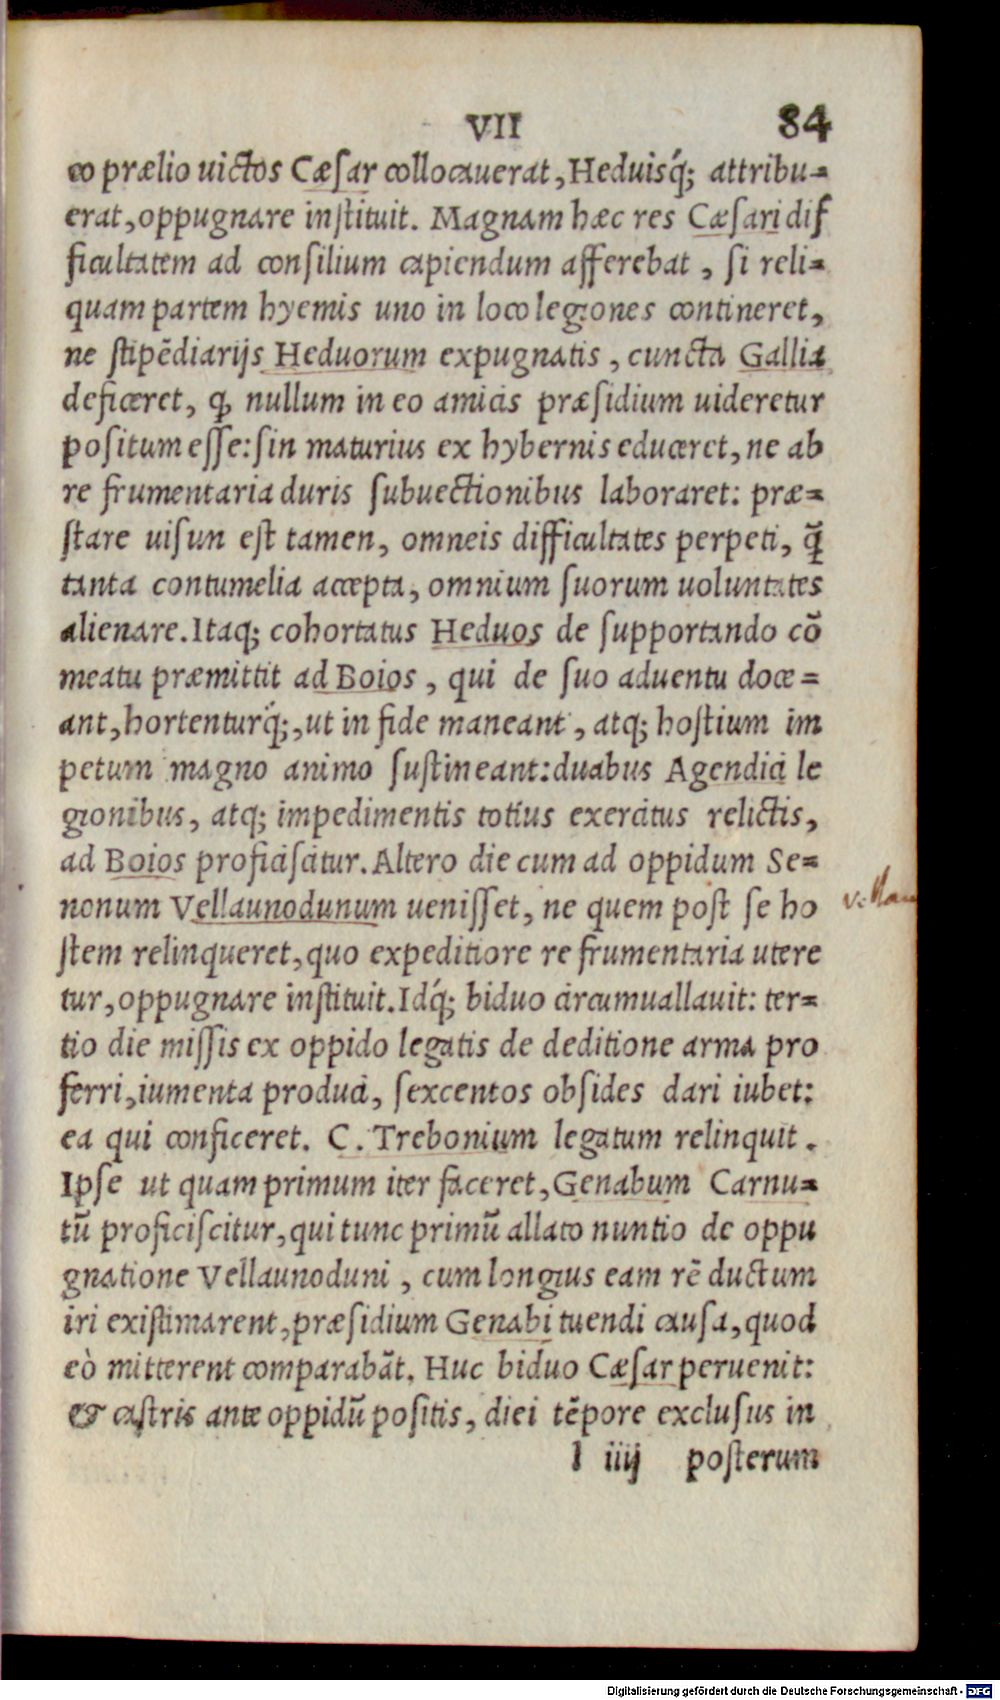 VII 84
eo prælio uictos Cæſar collocauerat, Heduisq́; attribu-
erat, oppugnare inſtituit. Magnam hæc res Cæſari dif
ficultatem ad conſilium capiendum afferebat, ſi reli-
quam partem hyemis uno in loco legiones contineret,
ne ſtipēdiarijs Heduorum expugnatis, cuncta Gallia
deficeret, ꝙ nullum in eo amicis præſidium uideretur
poſitum eſſe: ſin maturius ex hybernis educeret, ne ab
re frumentaria duris ſubuectionibus laboraret: præ-
ſtare uiſun eſt tamen, omneis difficultates perpeti, ꝗ̃
tanta contumelia accepta, omnium ſuorum uoluntates
alienare. Itaq; cohortatus Heduos de ſupportando cō
meatu præmittit ad Boios, qui de ſuo aduentu doce-
ant, hortenturq́;, ut in fide maneant, atq; hoſtium im
petum magno animo ſuſtineant: duabus Agendici le
gionibus, atq; impedimentis totius exercitus relictis,
ad Boios proficiſcitur. Altero die cum ad oppidum Se-
nonum Vellaunodunum ueniſſet, ne quem poſt ſe ho
ſtem relinqueret, quo expeditiore re frumentaria utere
tur, oppugnare inſtituit. Idq́; biduo circumuallauit: ter-
tio die miſſis ex oppido legatis de deditione arma pro
ferri, iumenta produci, ſexcentos obſides dari iubet:
ea qui conficeret. C. Trebonium legatum relinquit.
Ipſe ut quam primum iter faceret, Genabum Carnu-
tū proficiſcitur, qui tunc primū allato nuntio de oppu
gnatione Vellaunoduni, cum longius eam rē ductum
iri exiſtimarent, præſidium Genabi tuendi cauſa, quod
eò mitterent comparabāt. Huc biduo Cæſar peruenit:
& caſtris ante oppidū poſitis, diei tēpore excluſus in
l iiij poſterum
Digitalisierung gefördert durch die Deutsche Forschungsgemeinschaft - DFG